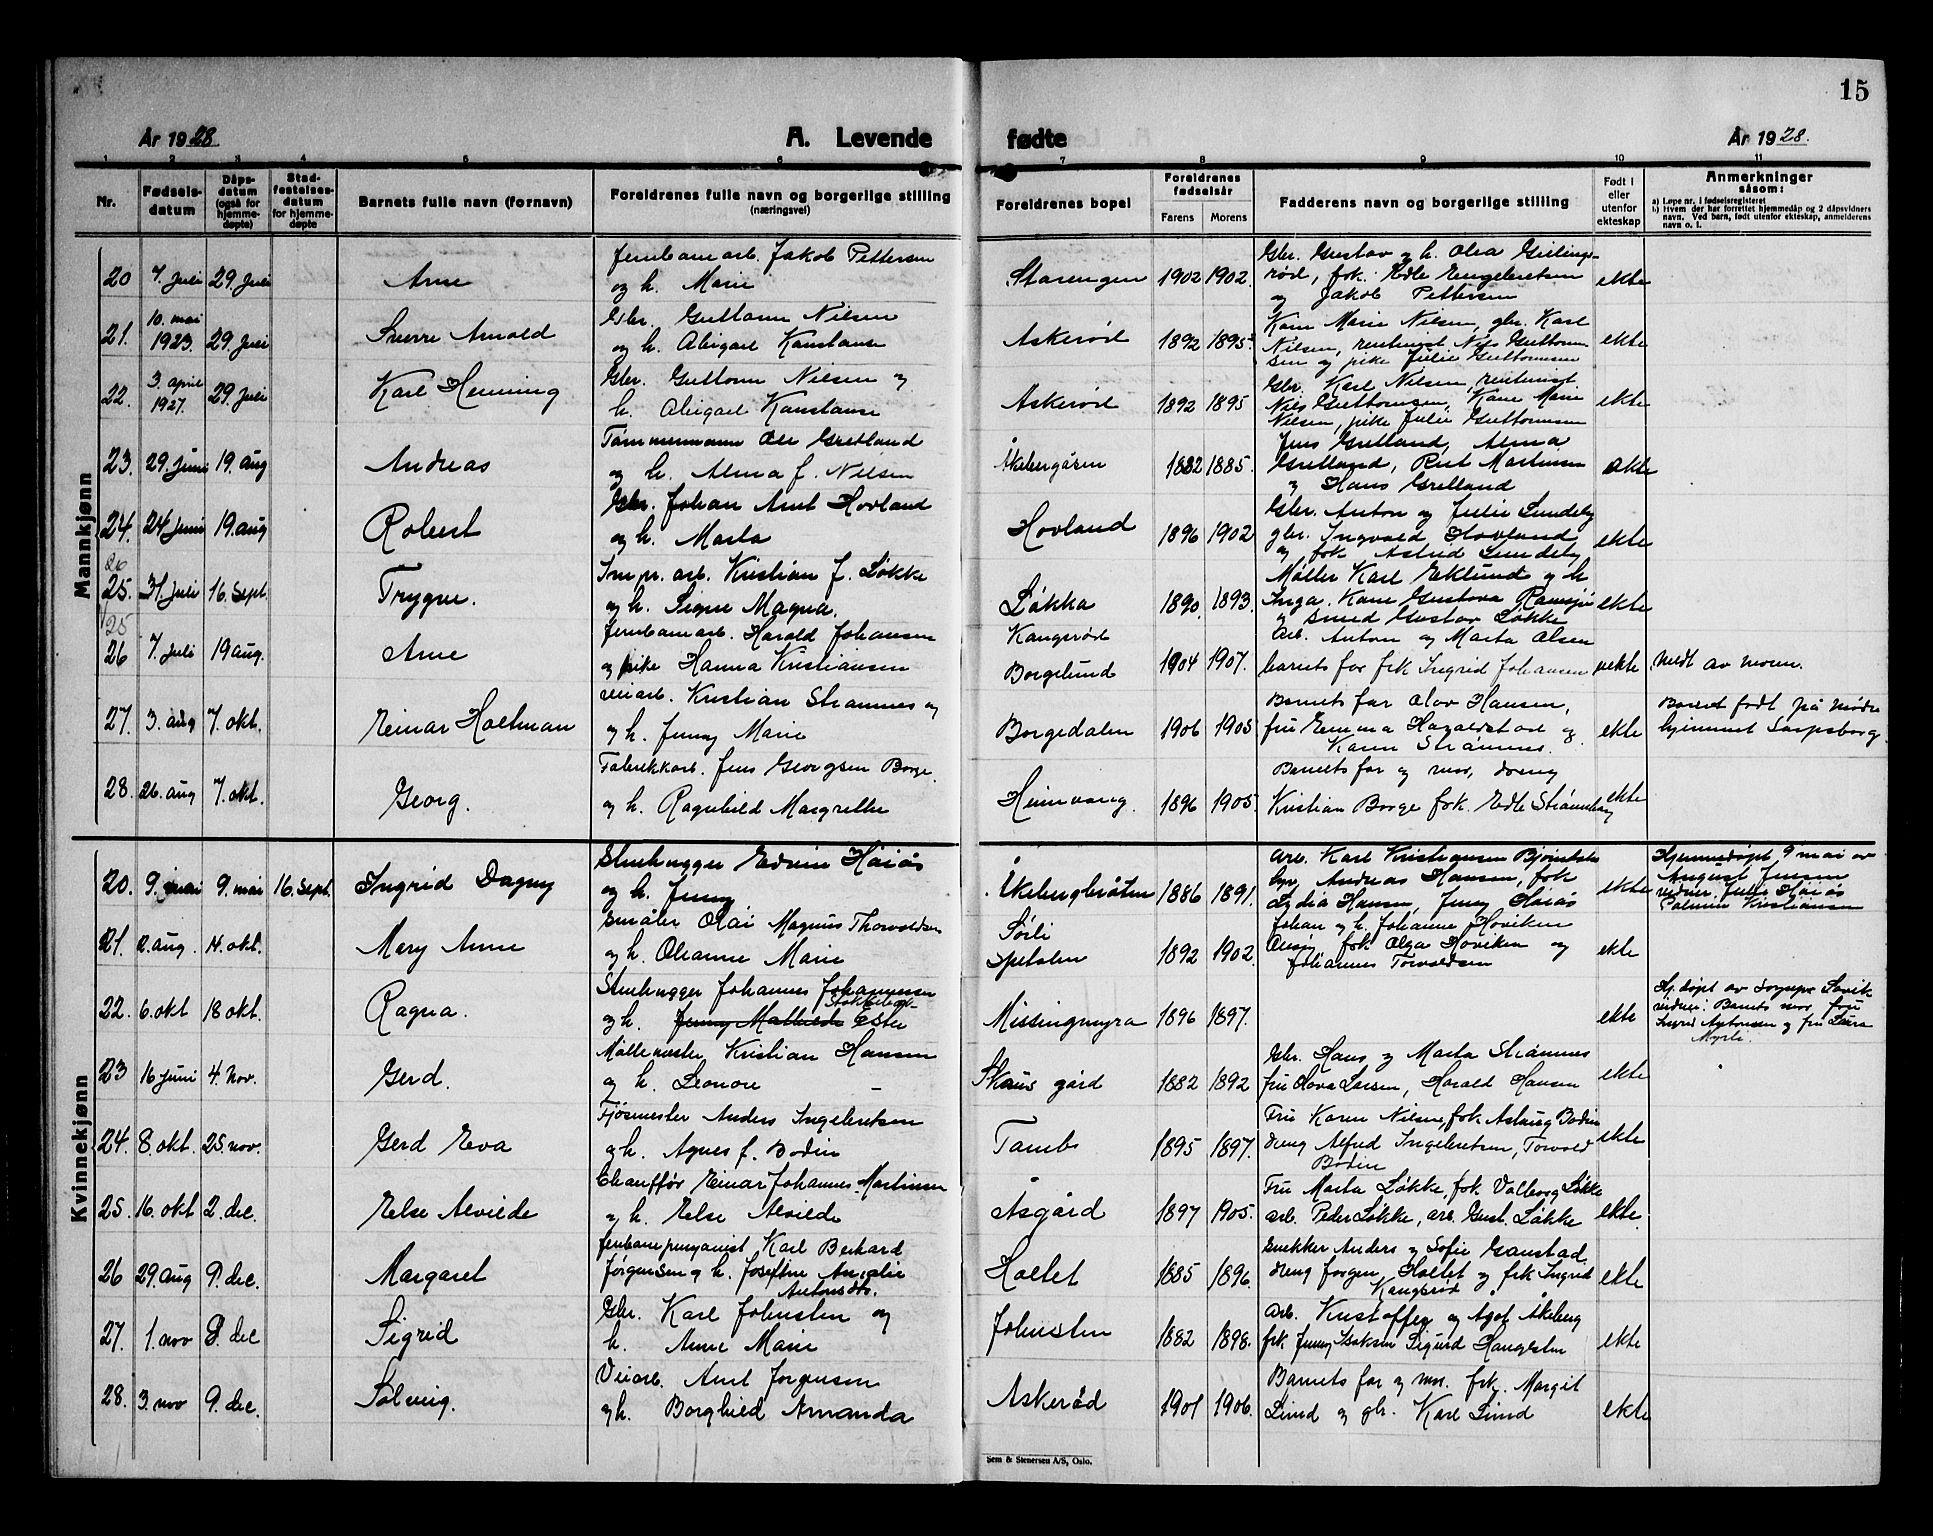 15
År 1928 A. Levende fødte År 1928.
1 2 3 4 5 6 7 8 9 10 11
Nr.
Fødselsdatum
Dåpsdatum (også for hjemmedøpte)
Stadfestelsesdatum for hjemmedøpte
Barnets fulle navn (fornavn)
Foreldrenes fulle navn og borgerlige stilling (næringsvei)
Foreldrenes bopel
Foreldrenes fødselsår
Farens Morens
Fadderens navn og borgerlige stilling
Født i eller utenfor ekteskap
Anmerkninger såsom:
a) Løpe nr. i fødselsregisteret
b) Hvem der har forrettet hjemmedåp og 2 dåpsvidners navn. Ved barn, født utenfor ekteskap, anmelderens navn o. l.
Mannkjønn
Jernbanearb. Jakob Pettersen
20 7. juli 29. juli Arne og h. Marie Starengen 1902 1902. ekte
og Jakob Pettersen
10. mai Gbr. Guttorm Nilsen
21. 1923. 29. juli Sverre Arnold og h. Abigael Konstanse Askerød 1892 1895 ekte
Kone Marie Nilsen, gbr. Karl
Nilsen, rentenist Nils Guttorm
sen og pike Julie Guttormsen
3. april Gbr. Guttorm Nilsen og
22. 1927. 29. juli Karl Henning h. Abigael Konstanse Askerød 1892 1895 ekte
Gbr. Karl Nilsen, rentenist
Nils Guttormsen, Kone Marie
Nilsen, pike Julie Guttormsen
Tømmermann Ole Grelland
23. 29. juni 19. aug Andreas og h. Alma f. Nilsen Åkebergåsen 1882 1885. ekte
Jens Grelland, Alma
Grelland, Rut Martinsen
og Hans Grelland
Gbr. Johan Amt Hovland
24. 24 juni 19. aug Robert og h. Marta Hovland 1896 1902 ekte
Gbr. Anton og Julie Lundeby
gbr. Ingvald Hovland
og frk Astrid Lundeby
26
Impr. arb. Kristian J. Løkke
25. 31. juli 16. sept. Trygve. og h. Signe Magna. Løkka 1890. 1893. ekte
Møller Karl Eklund og h
Inga. Kone Gustava Ramsjø
og smed Gustav Løkke
25
Jernbanearb. Harald Johansen Kangsrød
26 7. juli 19 aug. Arne og pike Hanna Kristiansen Borgelund 1904 1907. uekte Meldt av moren.
Arb. Anton og Marta Olsen
barnets far frk Ingrid Johansen
Veiarb. Kristian Strømnes og
27. 3. aug 7. okt. Einar Holtman og h. Jenny Marie Borgedalen 1906 1905 ekte
Barnets far Olav Hansen,
fru Emma Haraldstad og
Karen Strømnes.
Barnet født på mødre
hjemmet Sarpsborg.
Fabrikkarb. Jens Georgsen Borge
28. 26. aug 7. okt. Georg. og h. Ragnhild Margrethe Heimvang. 1896 1905. ekte
Barnets far og mor, dreng
Kristian Borge frk. Edle Strømberg
Kvinnekjønn
Stenhugger Edvin Høiås
20. 9. mai 9. mai 16. sept. Ingrid Dagny og h. Jenny Åkebergbråten 1886 1891. ekte
Arb. Karl Kristiansen
Andreas Hansen, frk
Lydia Hansen, Jenny Høiås
Hjemmedøpt 9 mai av
August Jensen
vidner Julie Høiås
Palmine Kristiansen
Småbr Olai Magnus Thorvaldsen Sørli
21. 2. aug. 14. okt. Mary Anne og h. Oleanne Marie Spetalen 1892 1902. ekte
Johan og h. Johanne Hoviken
frk Olga Hoviken og
Johannes Torvaldsen
Stenhugger Johannes Johannessen
22. 6. okt 18 okt. Ragna. og h. Jenny Mathilde Ester Missingmyra 1896 1897. ekte
Hj. døpt av sogнpr. Løvik
vidner: Barnets mor, fru
Ingrid Antonsen og fru Laura
Myrli.
Møllemester Kristian Hansen
23 16 juni 4. nov. Gerd. og h. Leonore Skaus gård 1882 1892 ekte
Gbr. Hans og Marta Strømnes
fru Hova Larsen, Harald Hansen
Fjøsmester Anders Ingebretsen
24. 8 okt. 25. nov. Gerd Eva og h. Agnes f. Bodin Tambs 1895 1897. ekte
Fru Karen Nilsen, frk Aslaug Bodin
dreng Alfred Ingebretsen, Torvald
Bodin
Chauffør Einar Johannes Martinsen
25. 16. okt 2. dec. Else Alvilde og h. Else Alvilde Åsgård 1897 1905. ekte.
Fru Marta Løkke, frk Valborg Løkke
arb. Peder Løkke, arb. Gust. Løkke
Jernbanepensjonist Karl Berhard
26 29. aug 9. dec. Margaret Jørgensen og h. Josefine Amalie Antonsdtr. Holtet 1885 1896. ekte
Snekker Anders og Sofie Gaustad
dreng Jørgen Holtet og frk Ingrid
Kangsrød
Gbr. Karl Johnsten og
27. 1. nov 9. dec Sigrid h. Anne Marie Johnsten 1882 1898. ekte
Arb. Kristoffer og Agot Åkeberg
frk Jenny Isaksen Sigurd Haugsten
Veiarb. Amt Jørgensen
28. 3. nov 9. dec. Solveig. og h. Borghild Amanda Askerød 1901 1906. ekte
Barnets far og mor. frk. Margit
Lund og gbr. Karl Lund
Sem & Stenersen A/S, Oslo.